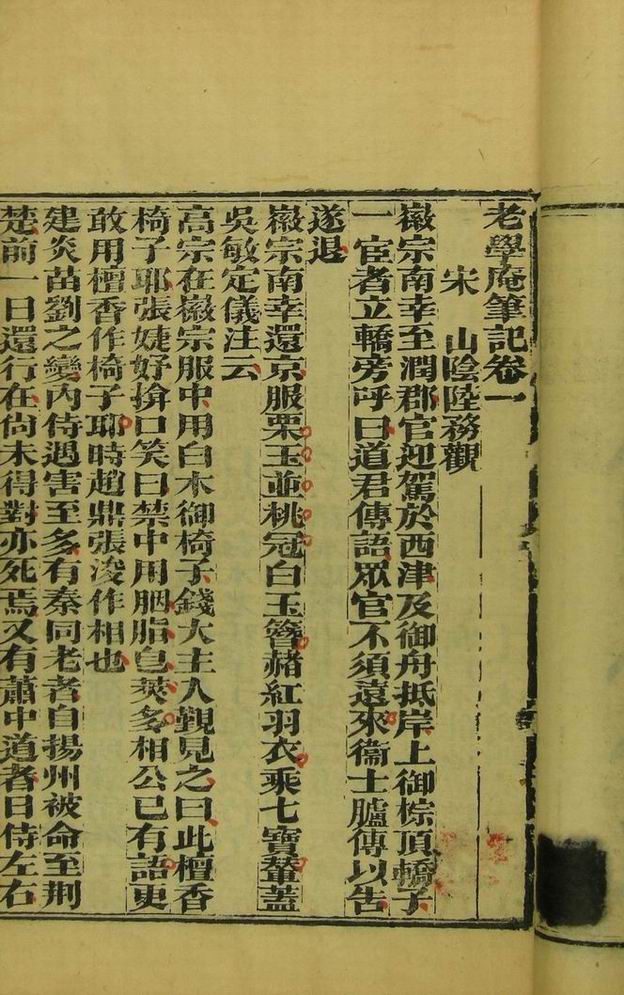 老學庵筆記卷一
宋　山陰陸務觀
徽宗南幸至潤郡官迎駕於西津及御舟抵岸上御棕頂轎子
一宦者立轎旁呼曰道君傳語眾官不須遠來衞士臚傳以告
遂退
徽宗南幸還京服栗玉並桃冠白玉簪赭紅羽衣乘七寶輦蓋
吳敏定儀注云
高宗在徽宗服中用白木御椅子錢大主入覲見之曰此檀香
椅子耶張婕妤掩口笑曰禁中用胭脂皂莢多相公已有語更
敢用檀香作椅子耶時趙鼎張浚作相也
建炎苗劉之變內侍遇害至多有秦同老者自揚州被命至荆
楚前一日還行在尚未得對亦死焉又有蕭中道者日侍左右